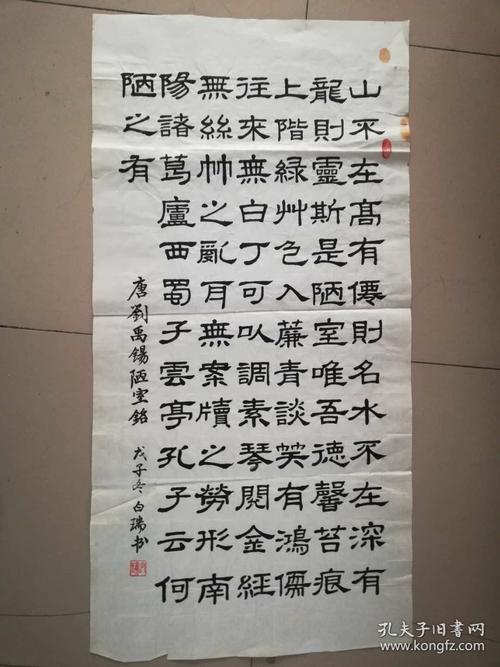 山不在高有僊則名水不在深有
龍則靈斯是陋室唯吾德馨苔痕
上階綠艸色入簾青談笑有鴻儒
往來無白丁可以調素琴閱金經
無絲竹之亂耳無案牘之勞形南
陽諸葛廬西蜀子雲亭孔子云何
陋之有
唐劉禹錫陋室銘 戊子冬白瑞书
孔夫子旧书网
www.kongfz.com